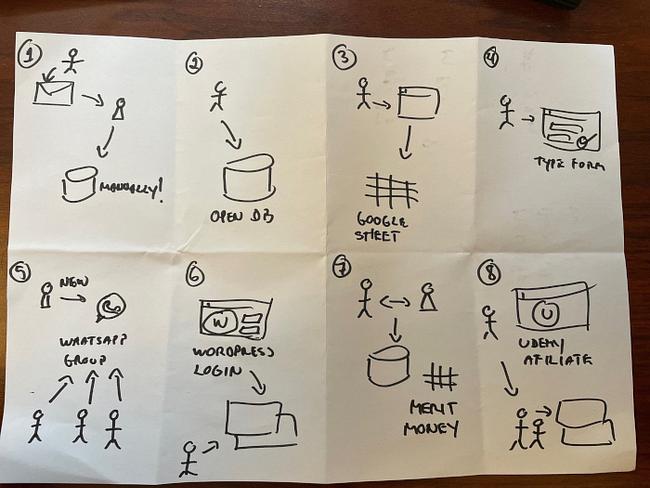 1
MANUALLY!
2
OPEN DB
3
GOOGLE
SHEET
4
TYPE FORM
5
NEW
WHATSAPP
GROUP
6
W
WORDPRESS
LOGIN
7
MERIT
MONEY
8
U
UDEMY
AFILIATE